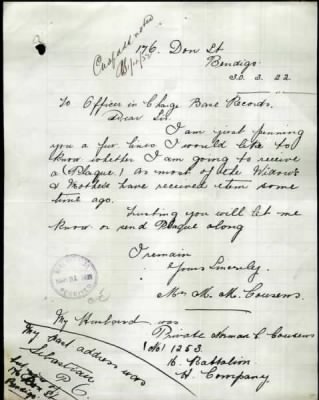 176 Don St
Bendigo
30.3.22
To Officer in Charge Base Records.
Dear Sir
I am just penning
you a few lines I would like to
know whether I am going to receive
a (Plaque) As most of the Widows
& Mothers have received them some
time ago.
Trusting you will let me
know or send Plaque along
I remain
Yours Sincerely
Mrs M. M. Cousens
My Husband was
Private Norman L Cousens
No 1253
16 Battalion
H Company
My past address was
Sebastian
P O
176 Don St
Bendigo